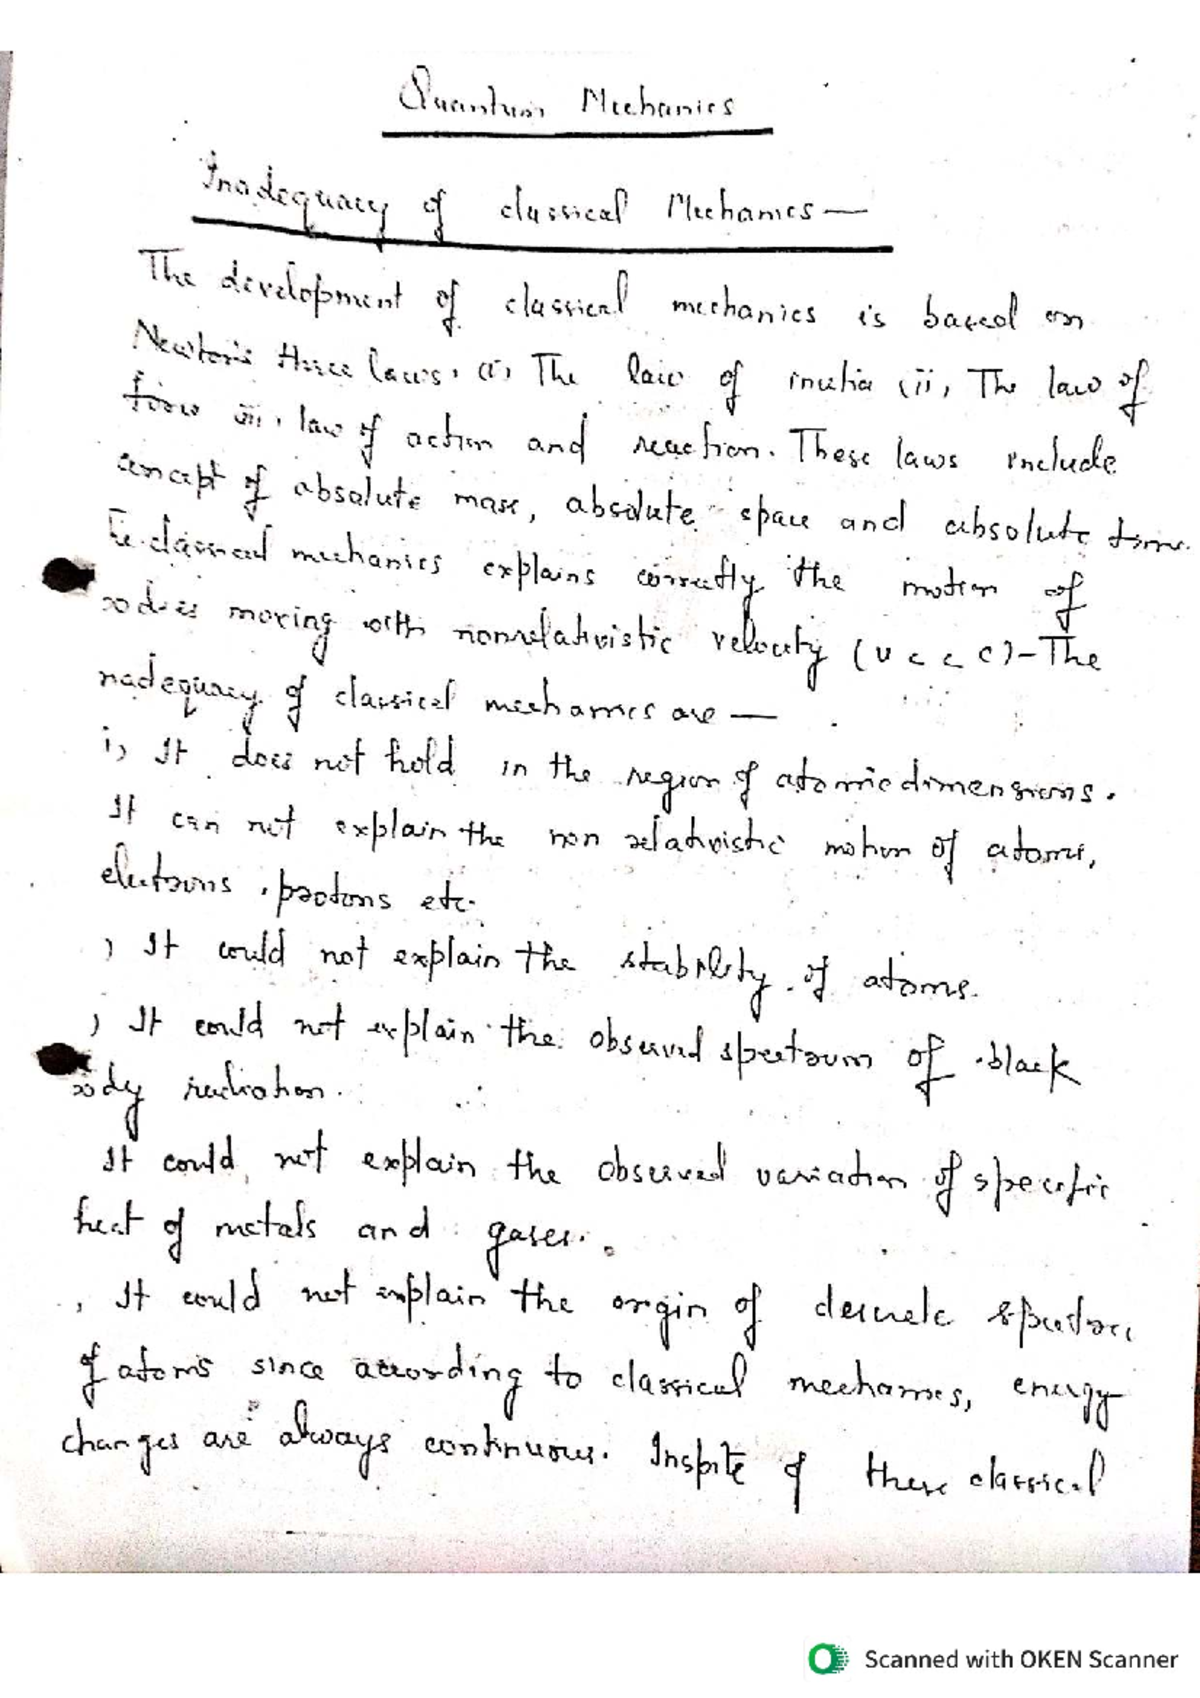 Quantum Mechanics
Inadequacy of classical Mechanics —
The development of classical mechanics is based on
Newton's three laws. (i) The law of inertia (ii) The law of
force iii. law of action and reaction. These laws include
concept of absolute mass, absolute space and absolute time.
classical mechanics explains correctly the motion of
moving with nonrelativistic velocity (v < < c) - The
nadequacy of classical mechanics are —
i) It does not hold in the region of atomic dimensions.
It can not explain the non relativistic motion of atoms,
electrons, protons etc.
) It could not explain the stability of atoms.
) It could not explain the observed spectrum of black
ody radiation.
It could not explain the observed variation of specific
heat of metals and gases.
, It could not explain the origin of discrete spectra
of atoms since according to classical mechanics, energy
changes are always continuous. Inspite of these classical
Scanned with OKEN Scanner